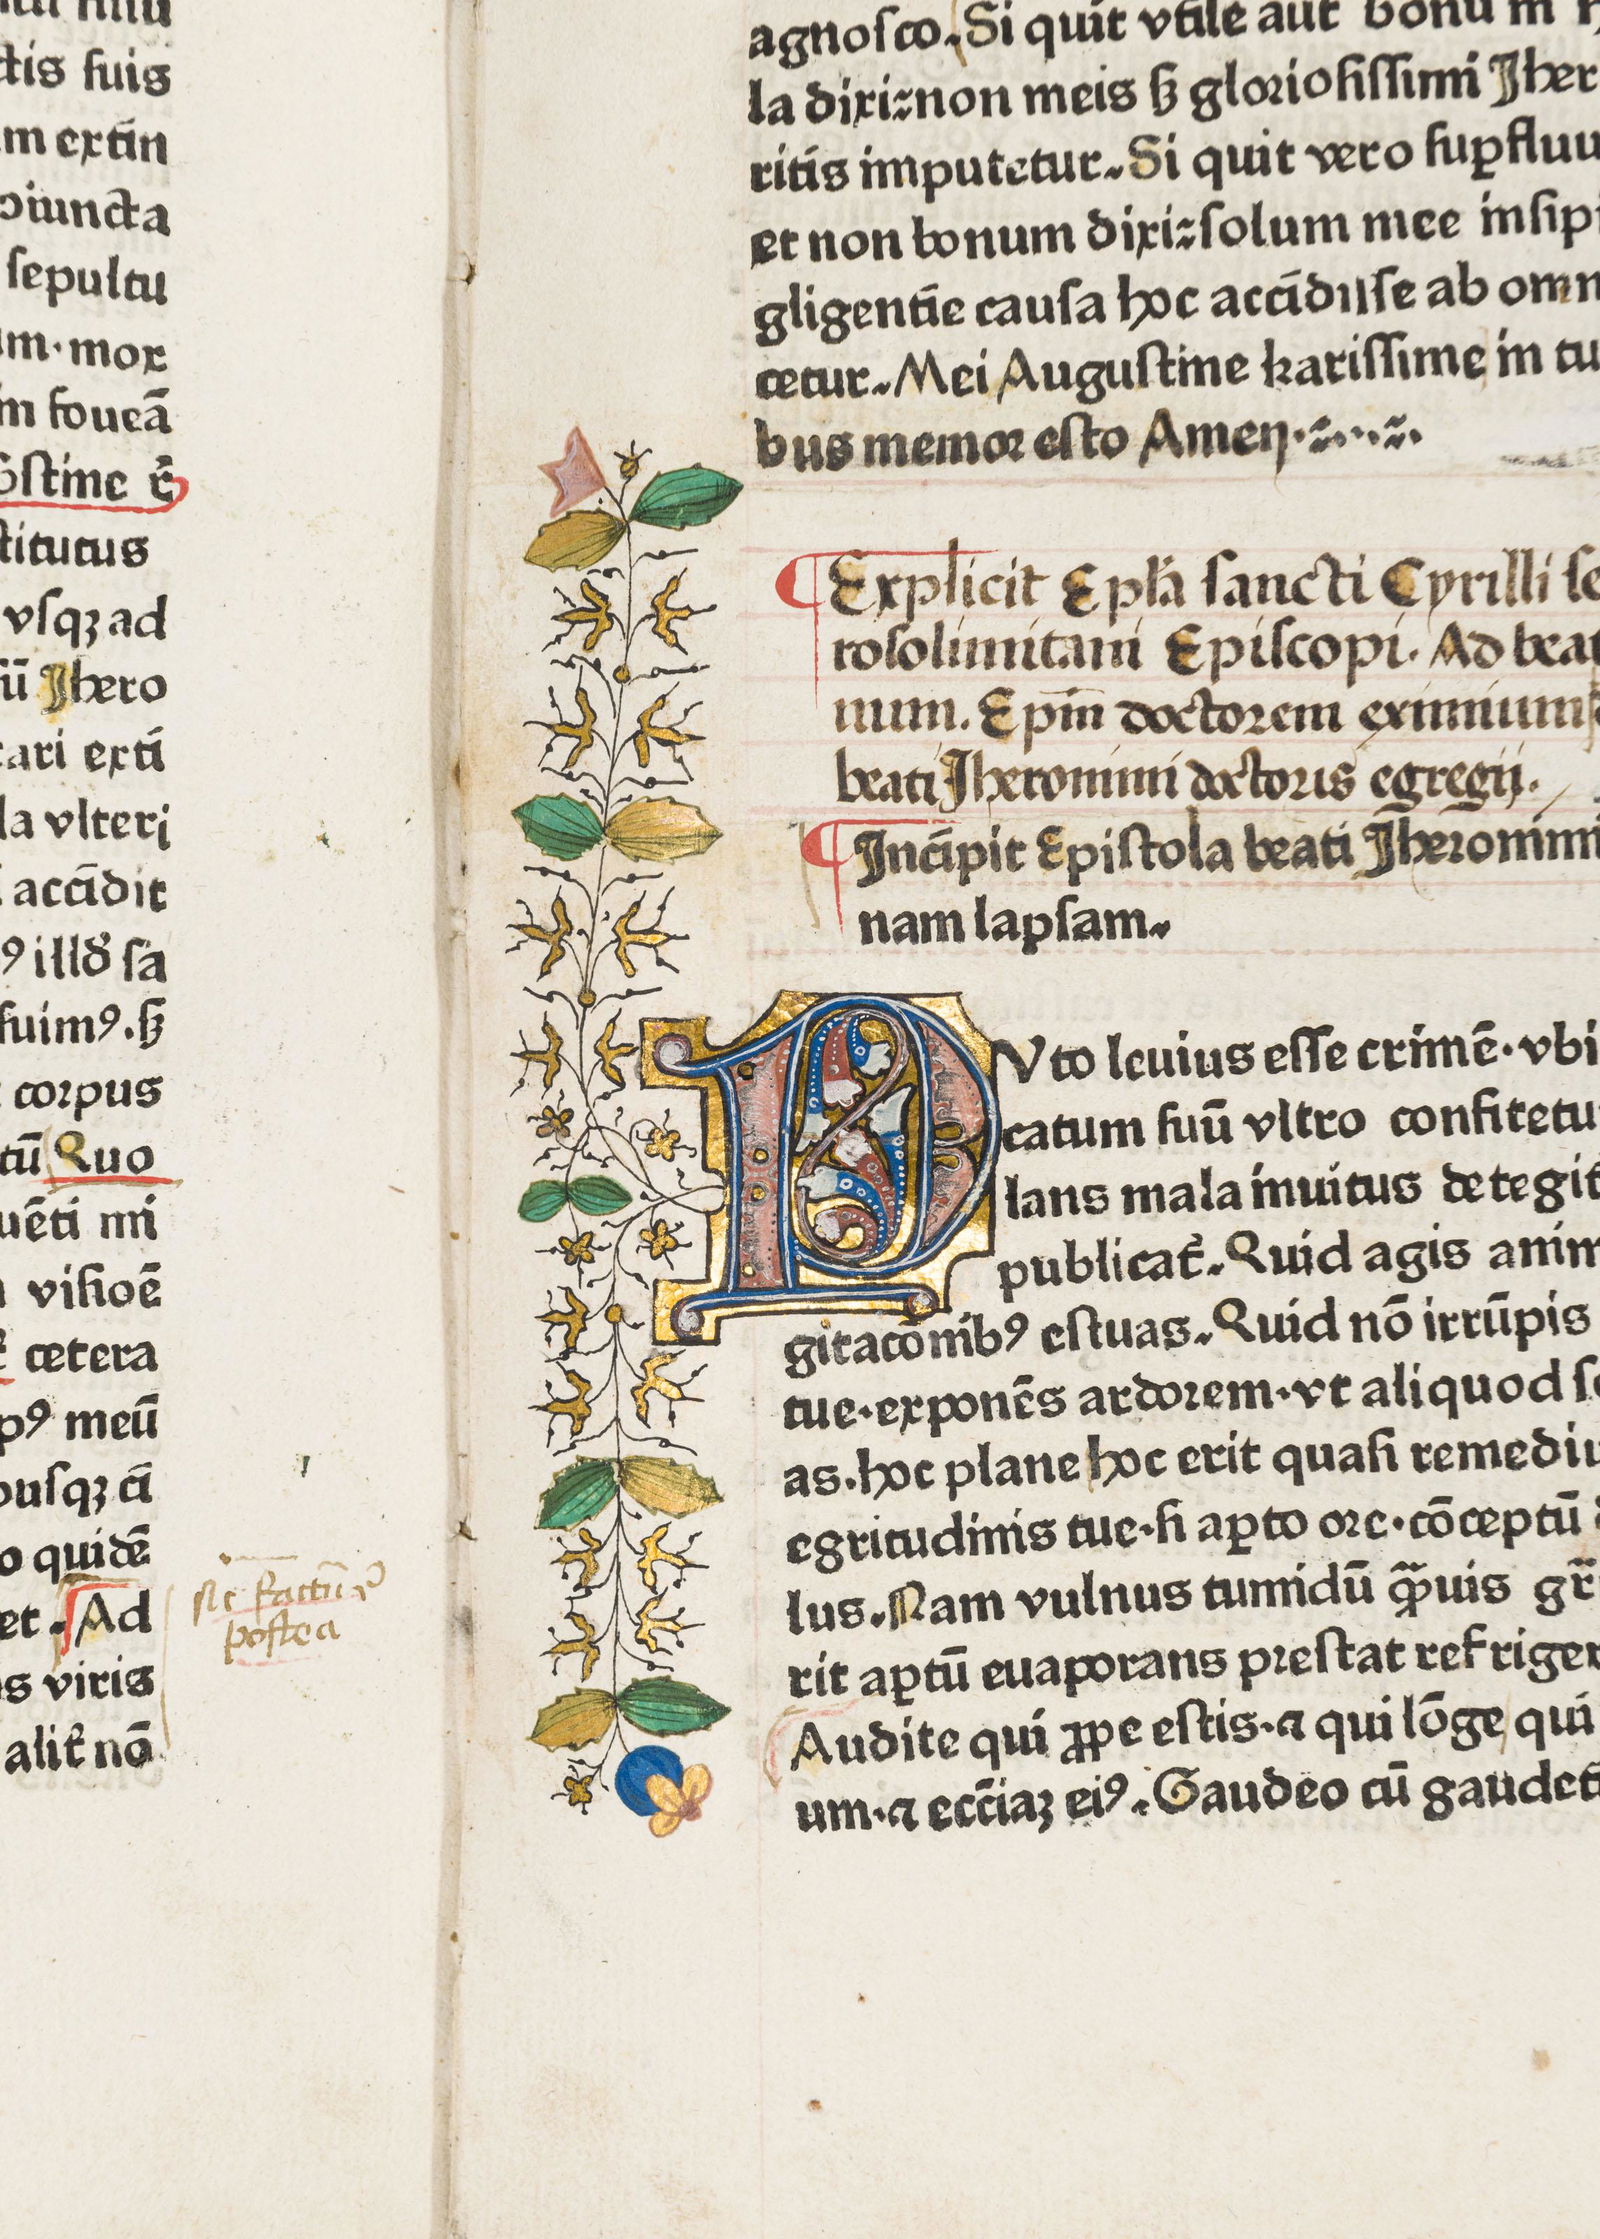 ctis suis
m extīn
oiuncta
sepultu
um. mox
m foueā
titutus
vsqꝫ ad
ū Jhero
tari exti
la vlteri
accīdit
ꝰ illđ sa
fuimꝰ. sꝫ
corpus
tū Quo
uēti mi
visioē
cetera
pꝰ meū
ousqꝫ cū
o quidē
et. Ad
s viris
alit̄ nō
postea
agnosco. Si quit vtile aut bonum
la dixi: non meis sꝫ gloriosissimi Jher
ritis imputetur. Si quit vero suꝑfluu
et non bonum dixi: solum mee insipi
gligentie causa hoc accidisse ab omn
cetur. Mei Augustine karissime in tu
bus memor esto Amen.
¶ Explicit Ep̄la sancti Cyrilli se
rosolimitani Episcopi. Ad beat
num. Ep̄m doctorem eximium
beati Jheronimi doctoris egregij.
¶ Incipit Epistola beati Jheronimi
nam lapsam.
PVto leuius esse crimē. vbi
catum suū vltro confitetu
lans mala inuitus detegit
publicat̄. Quid agis anim
gitacōnibꝰ estuas. Quid nō irrūpis
tue. exponēs ardorem. vt aliquod so
as. hoc plane hoc erit quasi remediu
egritudinis tue. si aꝑto ore. cōceptū
lus. Nam vulnus tumidū qᷓuis
rit aꝑtū euaporans prestat refriger
Audite qui ꝓpe estis. ⁊ qui lōge qui
um. ⁊ ecc̄iaꝫ eiꝰ. Gaudeo cū gaudeti